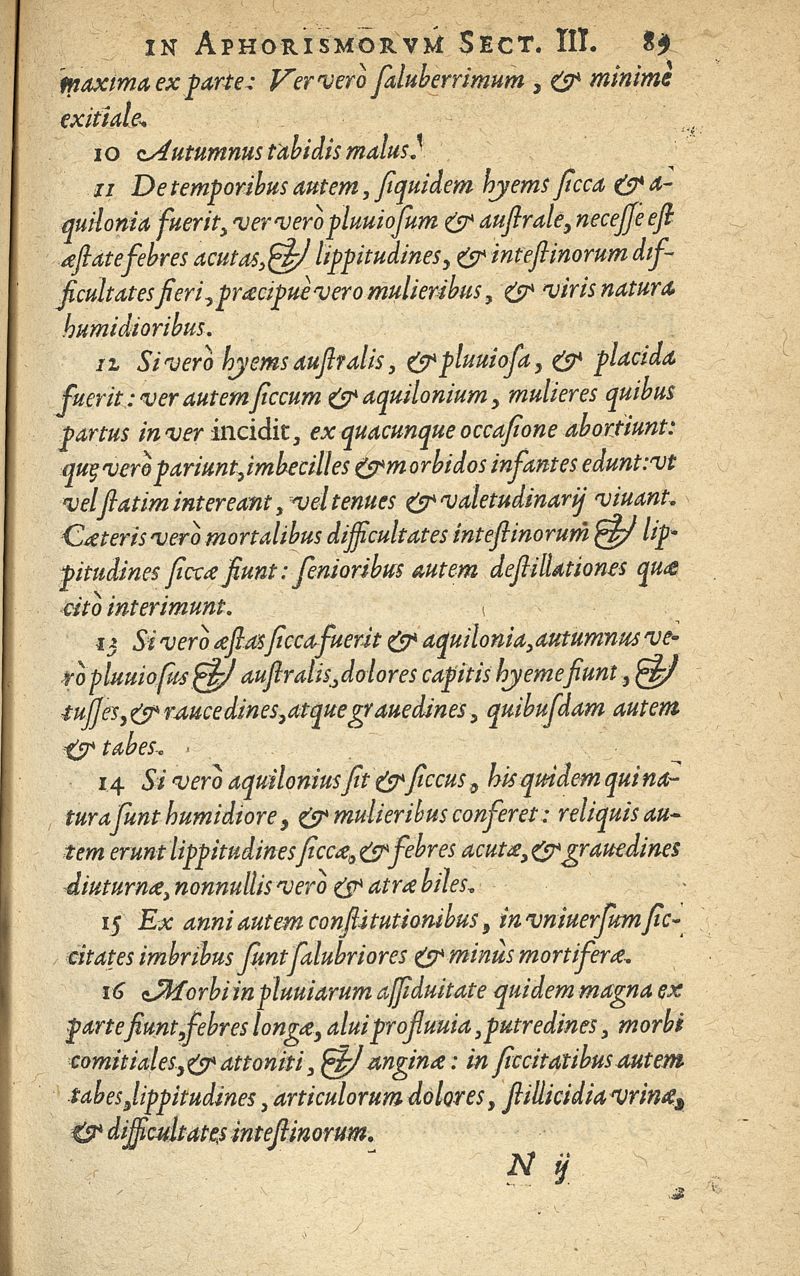 IN APHORISMORVM SECT. III. 89
maxima ex parte: Ver verò ſaluberrimum, & minimè
exitiale.
10 Autumnus tabidis malus.
11 De temporibus autem, ſiquidem hyems ſicca & a-
quilonia fuerit, ver verò pluuioſum & auſtrale, neceſſe eſt
æſtate febres acutas, & lippitudines, & inteſtinorum dif-
ficultates fieri, præcipuè vero mulieribus, & viris natura
humidioribus.
12 Si verò hyems auſtralis, & pluuioſa, & placida
fuerit: ver autem ſiccum & aquilonium, mulieres quibus
partus in ver incidit, ex quacunque occaſione abortiunt:
quę verò pariunt, imbecilles & morbidos infantes edunt: vt
vel ſtatim intereant, vel tenues & valetudinarij viuant.
Cæteris verò mortalibus difficultates inteſtinorum & lip-
pitudines ſiccæ fiunt: ſenioribus autem deſtillationes quæ
citò interimunt.
13 Si verò æſtas ſicca fuerit & aquilonia, autumnus ve-
rò pluuioſus & auſtralis, dolores capitis hyeme fiunt, &
tuſſes, & raucedines, atque grauedines, quibuſdam autem
& tabes.
14 Si verò aquilonius ſit & ſiccus, his quidem qui na-
tura ſunt humidiore, & mulieribus conferet: reliquis au-
tem erunt lippitudines ſiccæ, & febres acutæ, & grauedines
diuturnæ, nonnullis verò & atræ biles.
15 Ex anni autem conſtitutionibus, in vniuerſum ſic-
citates imbribus ſunt ſalubriores & minùs mortiferæ.
16 Morbi in pluuiarum aſſiduitate quidem magna ex
parte fiunt, febres longæ, alui profluuia, putredines, morbi
comitiales, & attoniti, & anginæ: in ſiccitatibus autem
tabes, lippitudines, articulorum dolores, ſtillicidia vrinæ,
& difficultates inteſtinorum.
N ij